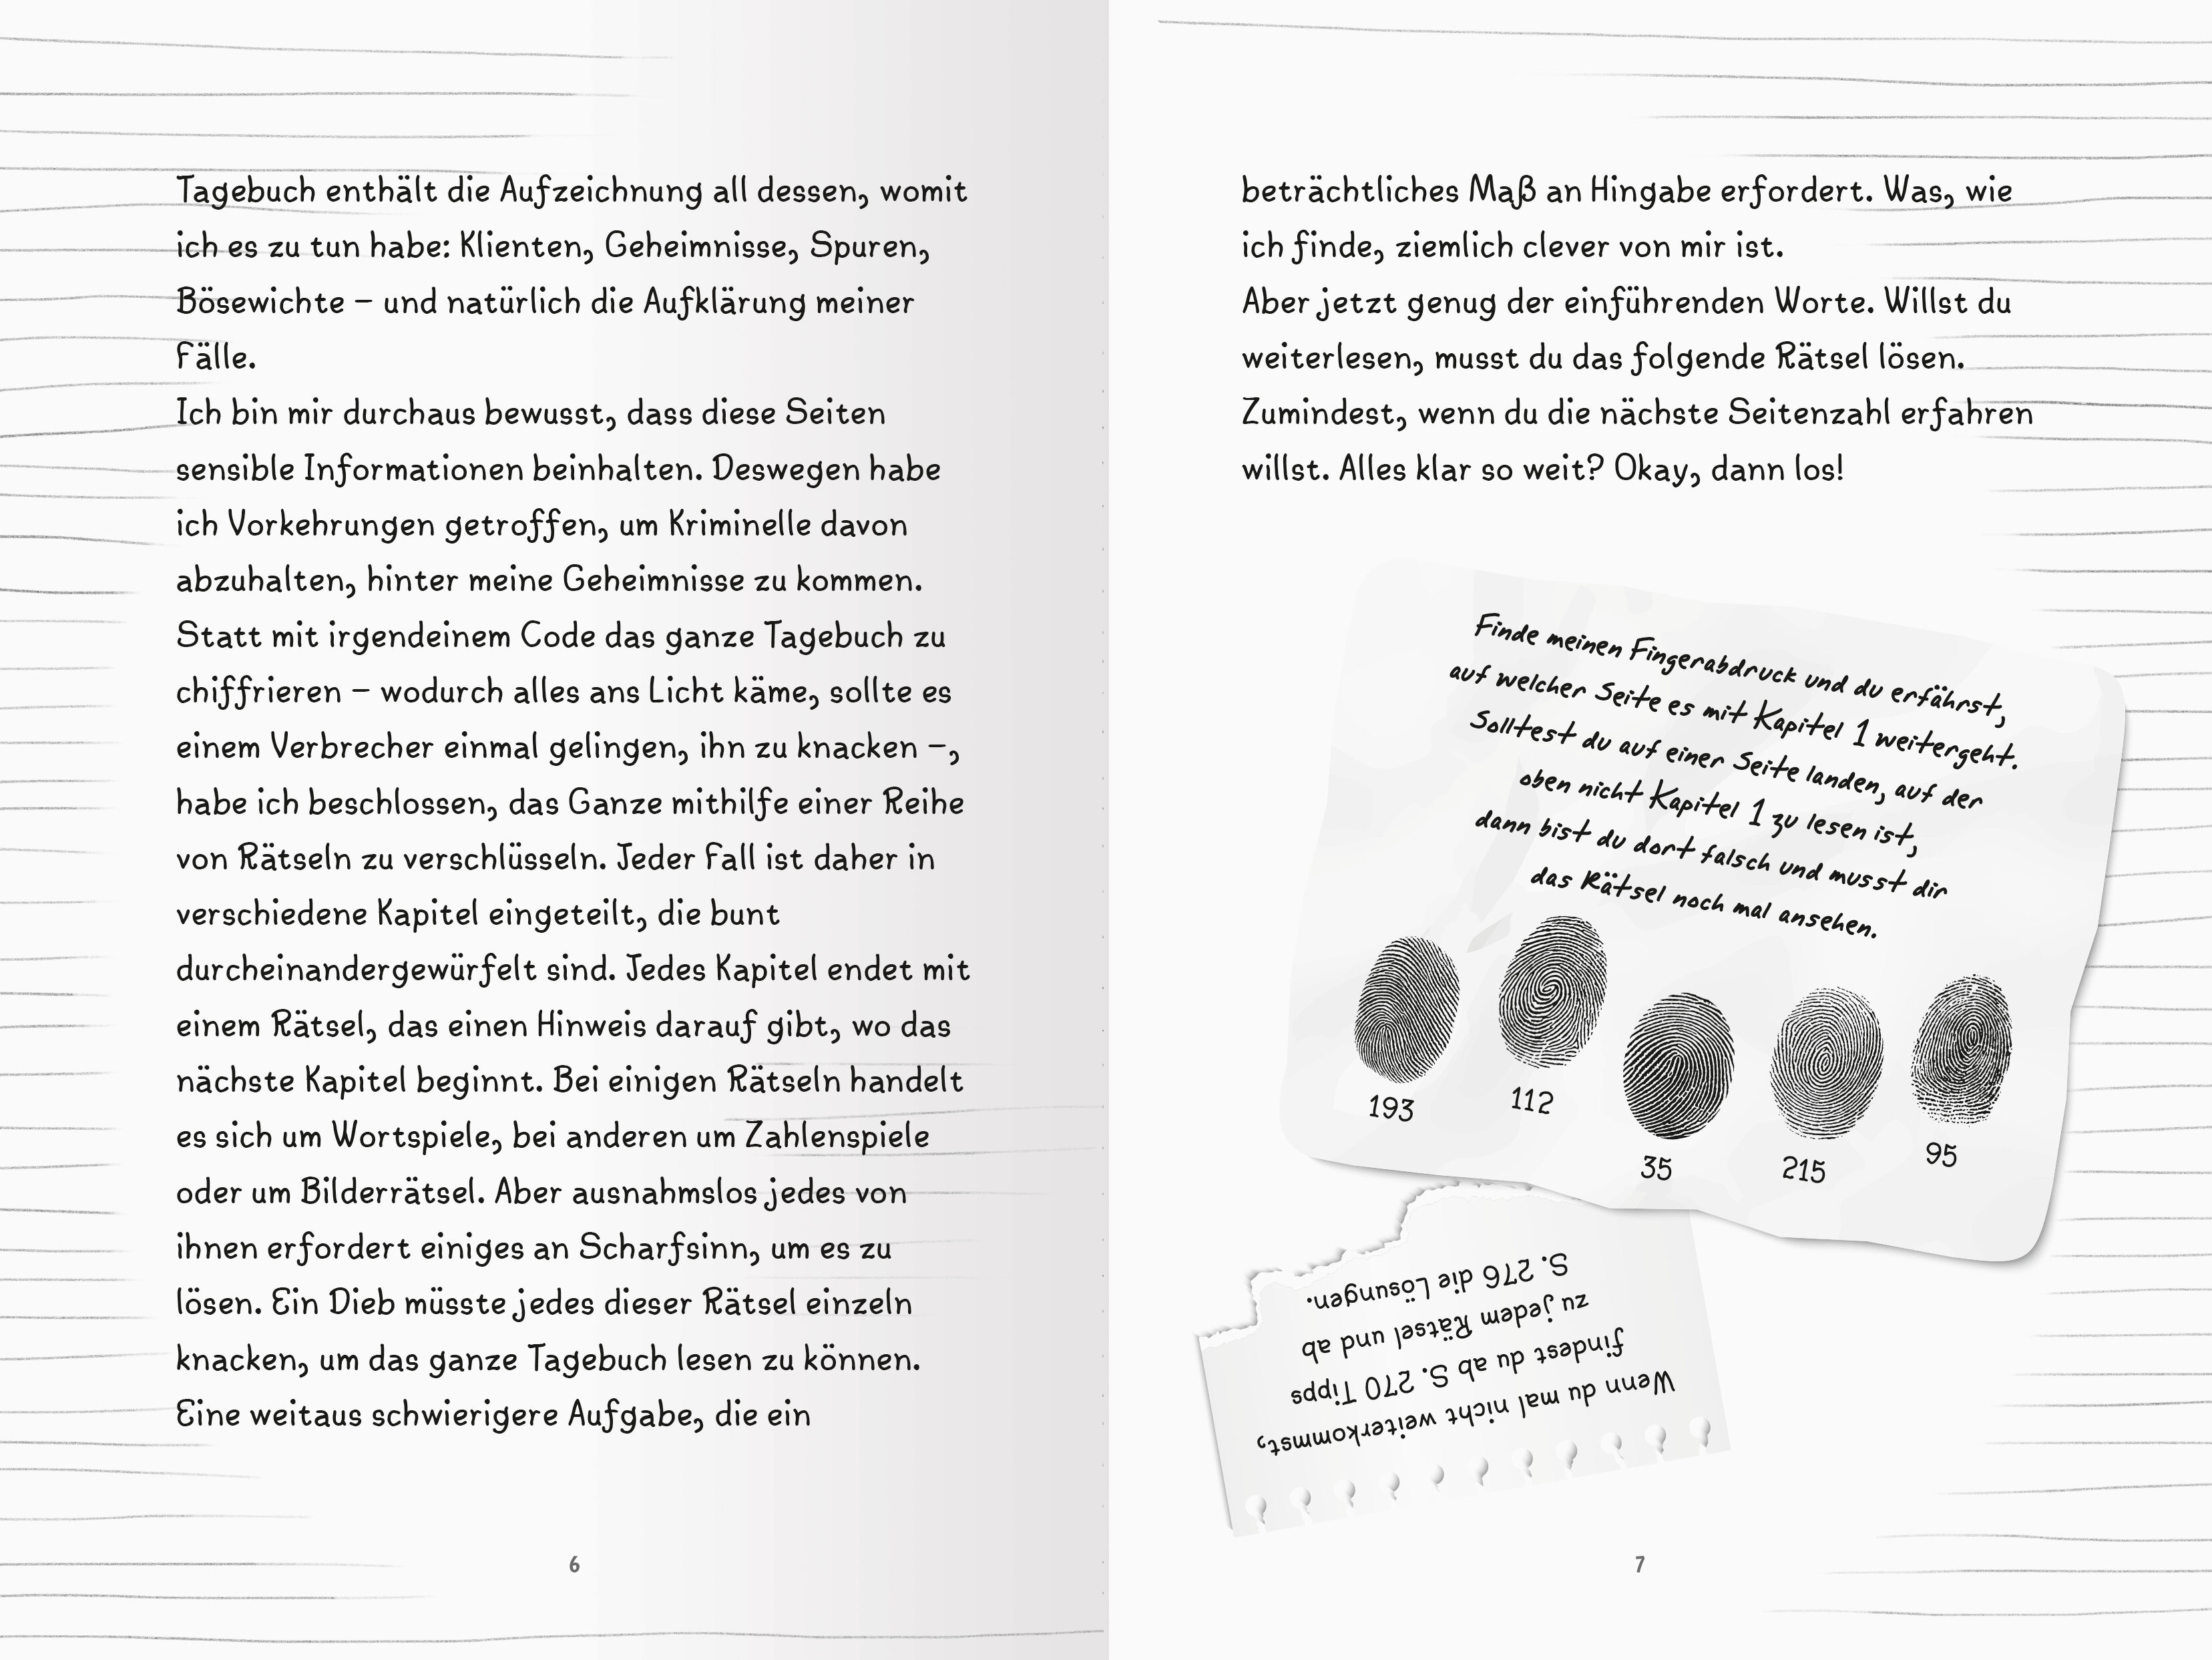 Tagebuch enthält die Aufzeichnung all dessen, womit
ich es zu tun habe: Klienten, Geheimnisse, Spuren,
Bösewichte – und natürlich die Aufklärung meiner
Fälle.
Ich bin mir durchaus bewusst, dass diese Seiten
sensible Informationen beinhalten. Deswegen habe
ich Vorkehrungen getroffen, um Kriminelle davon
abzuhalten, hinter meine Geheimnisse zu kommen.
Statt mit irgendeinem Code das ganze Tagebuch zu
chiffrieren – wodurch alles ans Licht käme, sollte es
einem Verbrecher einmal gelingen, ihn zu knacken –,
habe ich beschlossen, das Ganze mithilfe einer Reihe
von Rätseln zu verschlüsseln. Jeder Fall ist daher in
verschiedene Kapitel eingeteilt, die bunt
durcheinandergewürfelt sind. Jedes Kapitel endet mit
einem Rätsel, das einen Hinweis darauf gibt, wo das
nächste Kapitel beginnt. Bei einigen Rätseln handelt
es sich um Wortspiele, bei anderen um Zahlenspiele
oder um Bilderrätsel. Aber ausnahmslos jedes von
ihnen erfordert einiges an Scharfsinn, um es zu
lösen. Ein Dieb müsste jedes dieser Rätsel einzeln
knacken, um das ganze Tagebuch lesen zu können.
Eine weitaus schwierigere Aufgabe, die ein
6
beträchtliches Maß an Hingabe erfordert. Was, wie
ich finde, ziemlich clever von mir ist.
Aber jetzt genug der einführenden Worte. Willst du
weiterlesen, musst du das folgende Rätsel lösen.
Zumindest, wenn du die nächste Seitenzahl erfahren
willst. Alles klar so weit? Okay, dann los!
Finde meinen Fingerabdruck und du erfährst,
auf welcher Seite es mit Kapitel 1 weitergeht.
Solltest du auf einer Seite landen, auf der
oben nicht Kapitel 1 zu lesen ist,
dann bist du dort falsch und musst dir
das Rätsel noch mal ansehen.
193
112
35
215
95
Wenn du mal nicht weiterkommst,
findest du ab S. 270 Tipps
zu jedem Rätsel und ab
S. 276 die Lösungen.
7